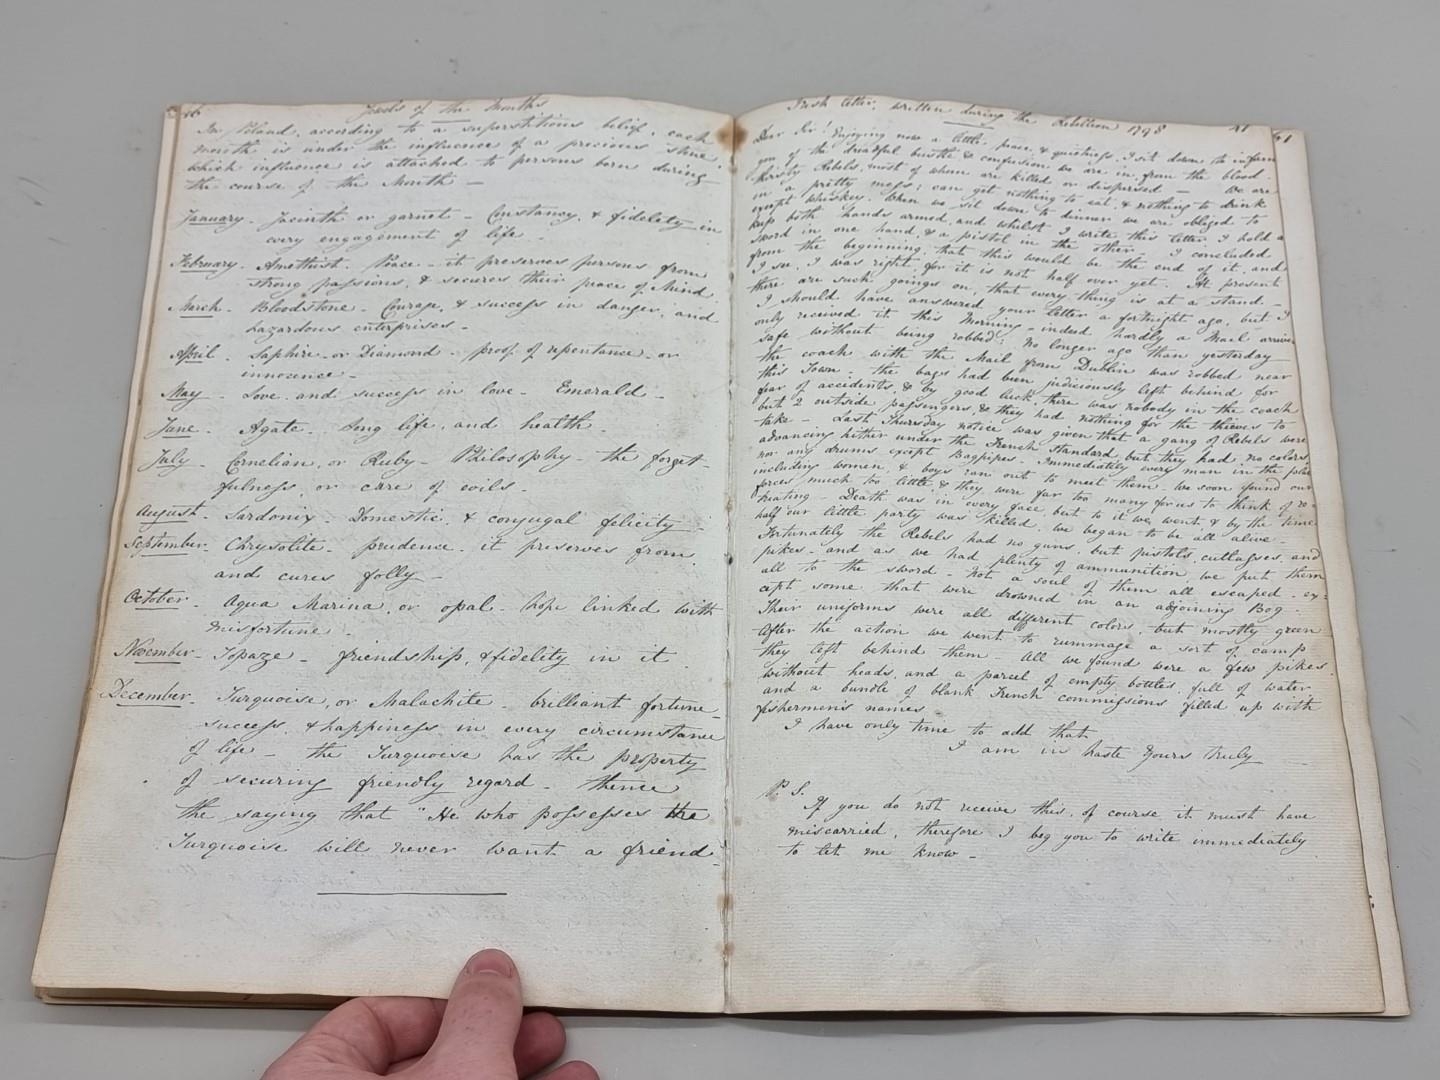 Jewels of the Months
In Poland, according to a superstitious belief, each
month is under the influence of a precious stone,
which influence is attached to persons born during
the course of the Month —
January. Jacinth or garnet – Constancy, & fidelity in
every engagement of life.
February. Amethist. Peace – it preserves persons from
strong passions, & secures their peace of Mind.
March. Bloodstone – Courage, & success in danger, and
hazardous enterprises –
April. Saphire or Diamond – proof of repentance or
innocence –
May – Love and success in love – Emerald –
June. Agate. Long life, and health.
July. Cornelian, or Ruby – Philosophy – the forget-
fulness, or cure of evils.
August. Sardonix. Domestic, & conjugal felicity –
September. Chrysolite. prudence. it preserves from
and cures folly –
October. Aqua Marina, or opal – hope linked with
misfortune.
November. Topaze – friendship, & fidelity in it.
December. Turquoise, or Malachite – brilliant fortune
success, & happiness in every circumstance
of life – the Turquoise has the property
of securing friendly regard – thence
the saying that "He who possesses the
Turquoise will never want a friend.
Irish letter, written during the Rebellion 1798
Dear Sir! Enjoying now a little peace & quietness, I sit down to inform
you of the dreadful bustle & confusion we are in, from the blood
thirsty Rebels, most of whom are killed or dispersed – We are
in a pretty mess; can get nothing to eat, & nothing to drink
except whiskey. When we sit down to dinner we are obliged to
keep both hands armed, and whilst I write this letter I hold a
sword in one hand, & a pistol in the other. I concluded
from the beginning, that this would be the end of it, and
I see, I was right, for it is not half over yet. At present
there are such goings on, that every thing is at a stand –
I should have answered your letter a fortnight ago, but I
only received it this Morning – indeed hardly a Mail arrives
safe without being robbed; no longer ago than yesterday
the coach with the Mail from Dublin was robbed near
this Town: the bags had been judiciously left behind for
fear of accidents, & by good luck, there was nobody in the coach
but 2 outside passengers, & they had nothing for the thieves to
take – Last Thursday notice was given that a gang of Rebels were
advancing hither under the French standard, but they had no colors,
nor any drums except Bagpipes. Immediately every man in the place
including women, & boys ran out to meet them. We soon found our
forces much too little & they were far too many for us to think of re-
treating – Death was in every face, but to it we went, & by the time
half our little party was killed, we began to be all alive –
Fortunately the Rebels had no guns, but pistols, cutlasses, and
pikes – and as we had plenty of ammunition, we put them
all to the sword – not a soul of them all escaped – ex-
cept some that were drowned in an adjoining Bog –
Their uniforms were all different colors, but mostly green
After the action we went to rummage a sort of camp
they left behind them – All we found were a few pikes
without heads, and a parcel of empty bottles, full of water
and a bundle of blank French commissions filled up with
fishermen's names
I have only time to add that
I am in haste yours truly
P. S.
If you do not receive this, of course it must have
miscarried, therefore I beg you to write immediately
to let me know –